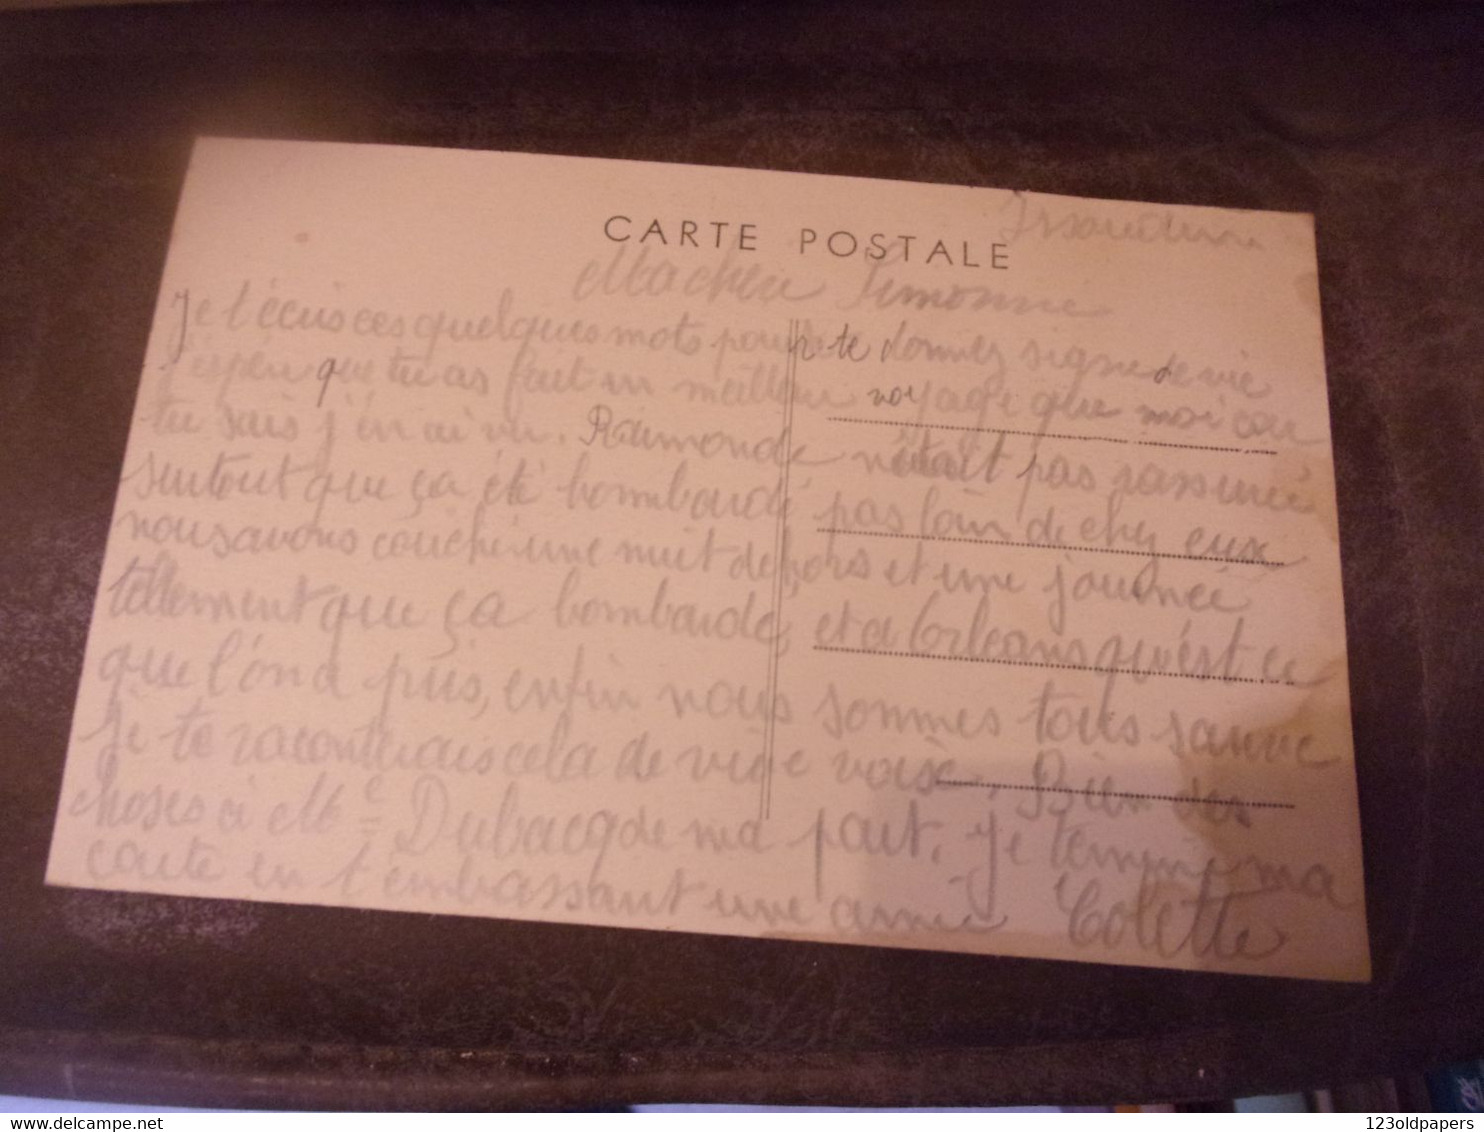 Issoudun
CARTE POSTALE
Ma chère Simonne
Je t'écris ces quelques mots pour te donnez signe de vie
j'espère que tu as fait un meilleur voyage que moi car
tu sais j'en ai vu. Raimonde n'était pas rassurée
surtout que ça été bombardé pas loin de chez eux
nous avons couché une nuit dehors et une journée
tellement que ça bombarde, et a Orleans qu'est ce
que l'on a pris, enfin nous sommes tous sauvé
je te raconterais cela de vive voix. Bien des
choses à Me Dubacq de ma part. Je termine ma
carte en t'embrassant une amie Colette
123oldpapers